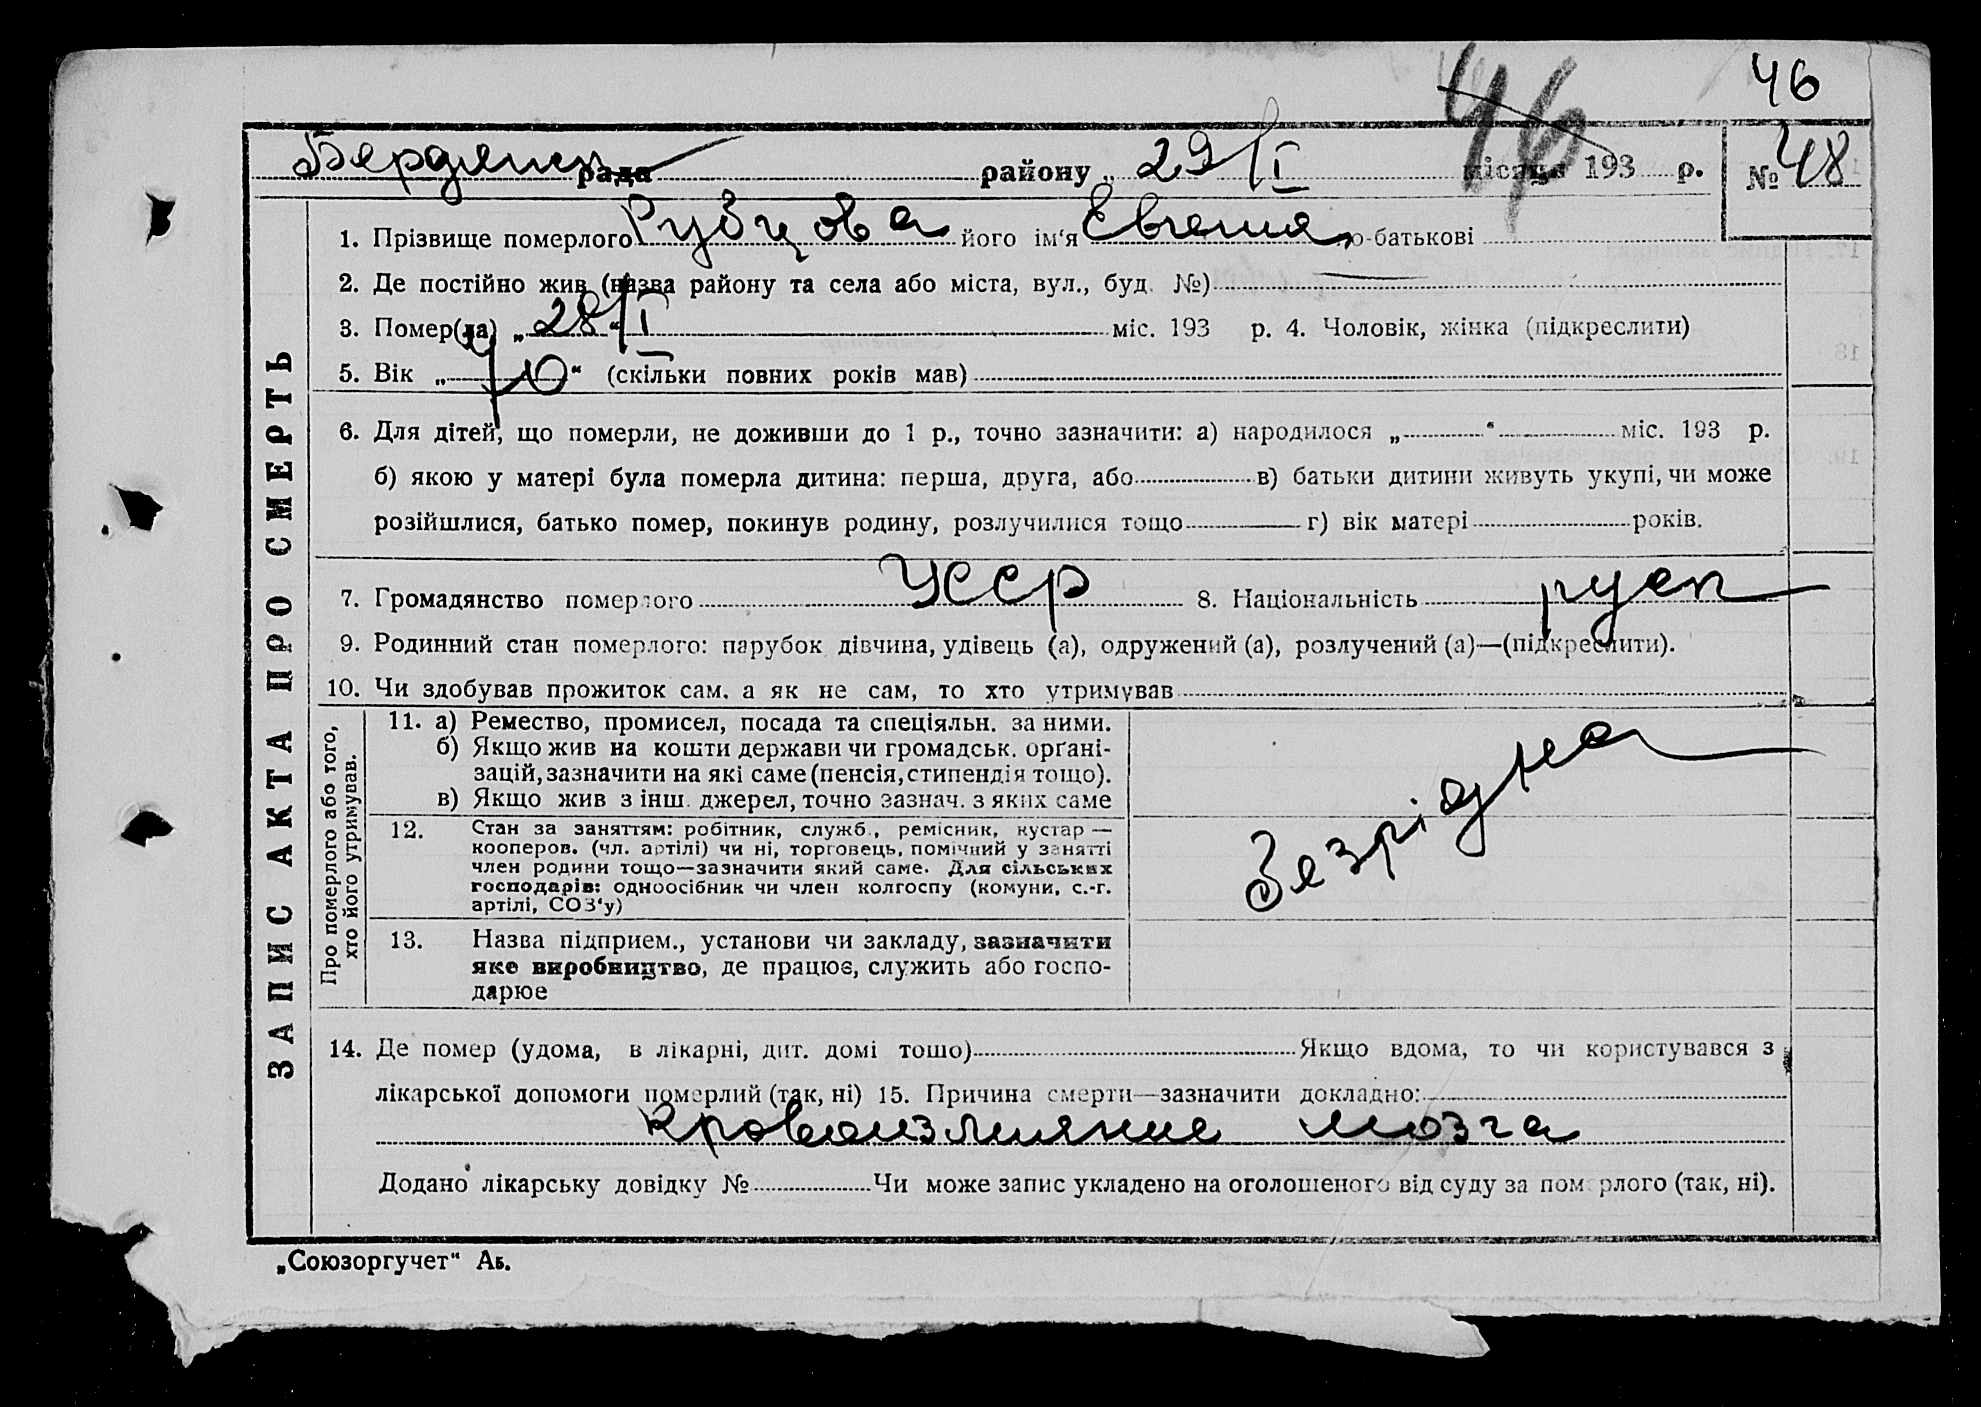 46
46
Бердянск рада району „ 29/I місяця 193 р. № 48
ЗАПИС АКТА ПРО СМЕРТЬ
1. Прізвище померлого Рубцова його ім‘я Евгения по-батькові
2. Де постійно жив (назва району та села або міста, вул., буд. №)
3. Помер(ла) „ 28/I “ міс. 193 р. 4. Чоловік, жінка (підкреслити)
5. Вік „ 70 “ (скільки повних років мав)
6. Для дітей, що померли, не доживши до 1 р., точно зазначити: а) народилося „ “ міс. 193 р.
б) якою у матері була померла дитина: перша, друга, або в) батьки дитини живуть укупі, чи може
розійшлися, батько помер, покинув родину, розлучилися тощо г) вік матері років.
7. Громадянство померлого УССР 8. Національність русск
9. Родинний стан померлого: парубок дівчина, удівець (а), одружений (а), розлучений (а)—(підкреслити).
10. Чи здобував прожиток сам, а як не сам, то хто утримував
Про померлого або того,
хто його утримував.
11. а) Ремество, промисел, посада та спеціяльн. за ними.
б) Якщо жив на кошти держави чи громадськ. орґані-
зацій, зазначити на які саме (пенсія, стипендія тощо).
в) Якщо жив з інш. джерел, точно зазнач. з яких саме
12. Стан за заняттям: робітник, служб., ремісник, кустар —
кооперов. (чл. артілі) чи ні, торговець, помічний у занятті
член родини тощо—зазначити який саме. Для сільських
господарів: одноосібник чи член колгоспу (комуни, с.-г.
артілі, СОЗ‘у)
13. Назва підприєм., установи чи закладу, зазначити
яке виробництво, де працює, служить або госпо-
дарює
Безрідна
14. Де помер (удома, в лікарні, дит. домі тощо) Якщо вдома, то чи користувався з
лікарської допомоги померлий (так, ні) 15. Причина смерти—зазначити докладно:
кровоизлияние мозга
Додано лікарську довідку № Чи може запис укладено на оголошеного від суду за померлого (так, ні).
„Союзоргучет“ Аб.